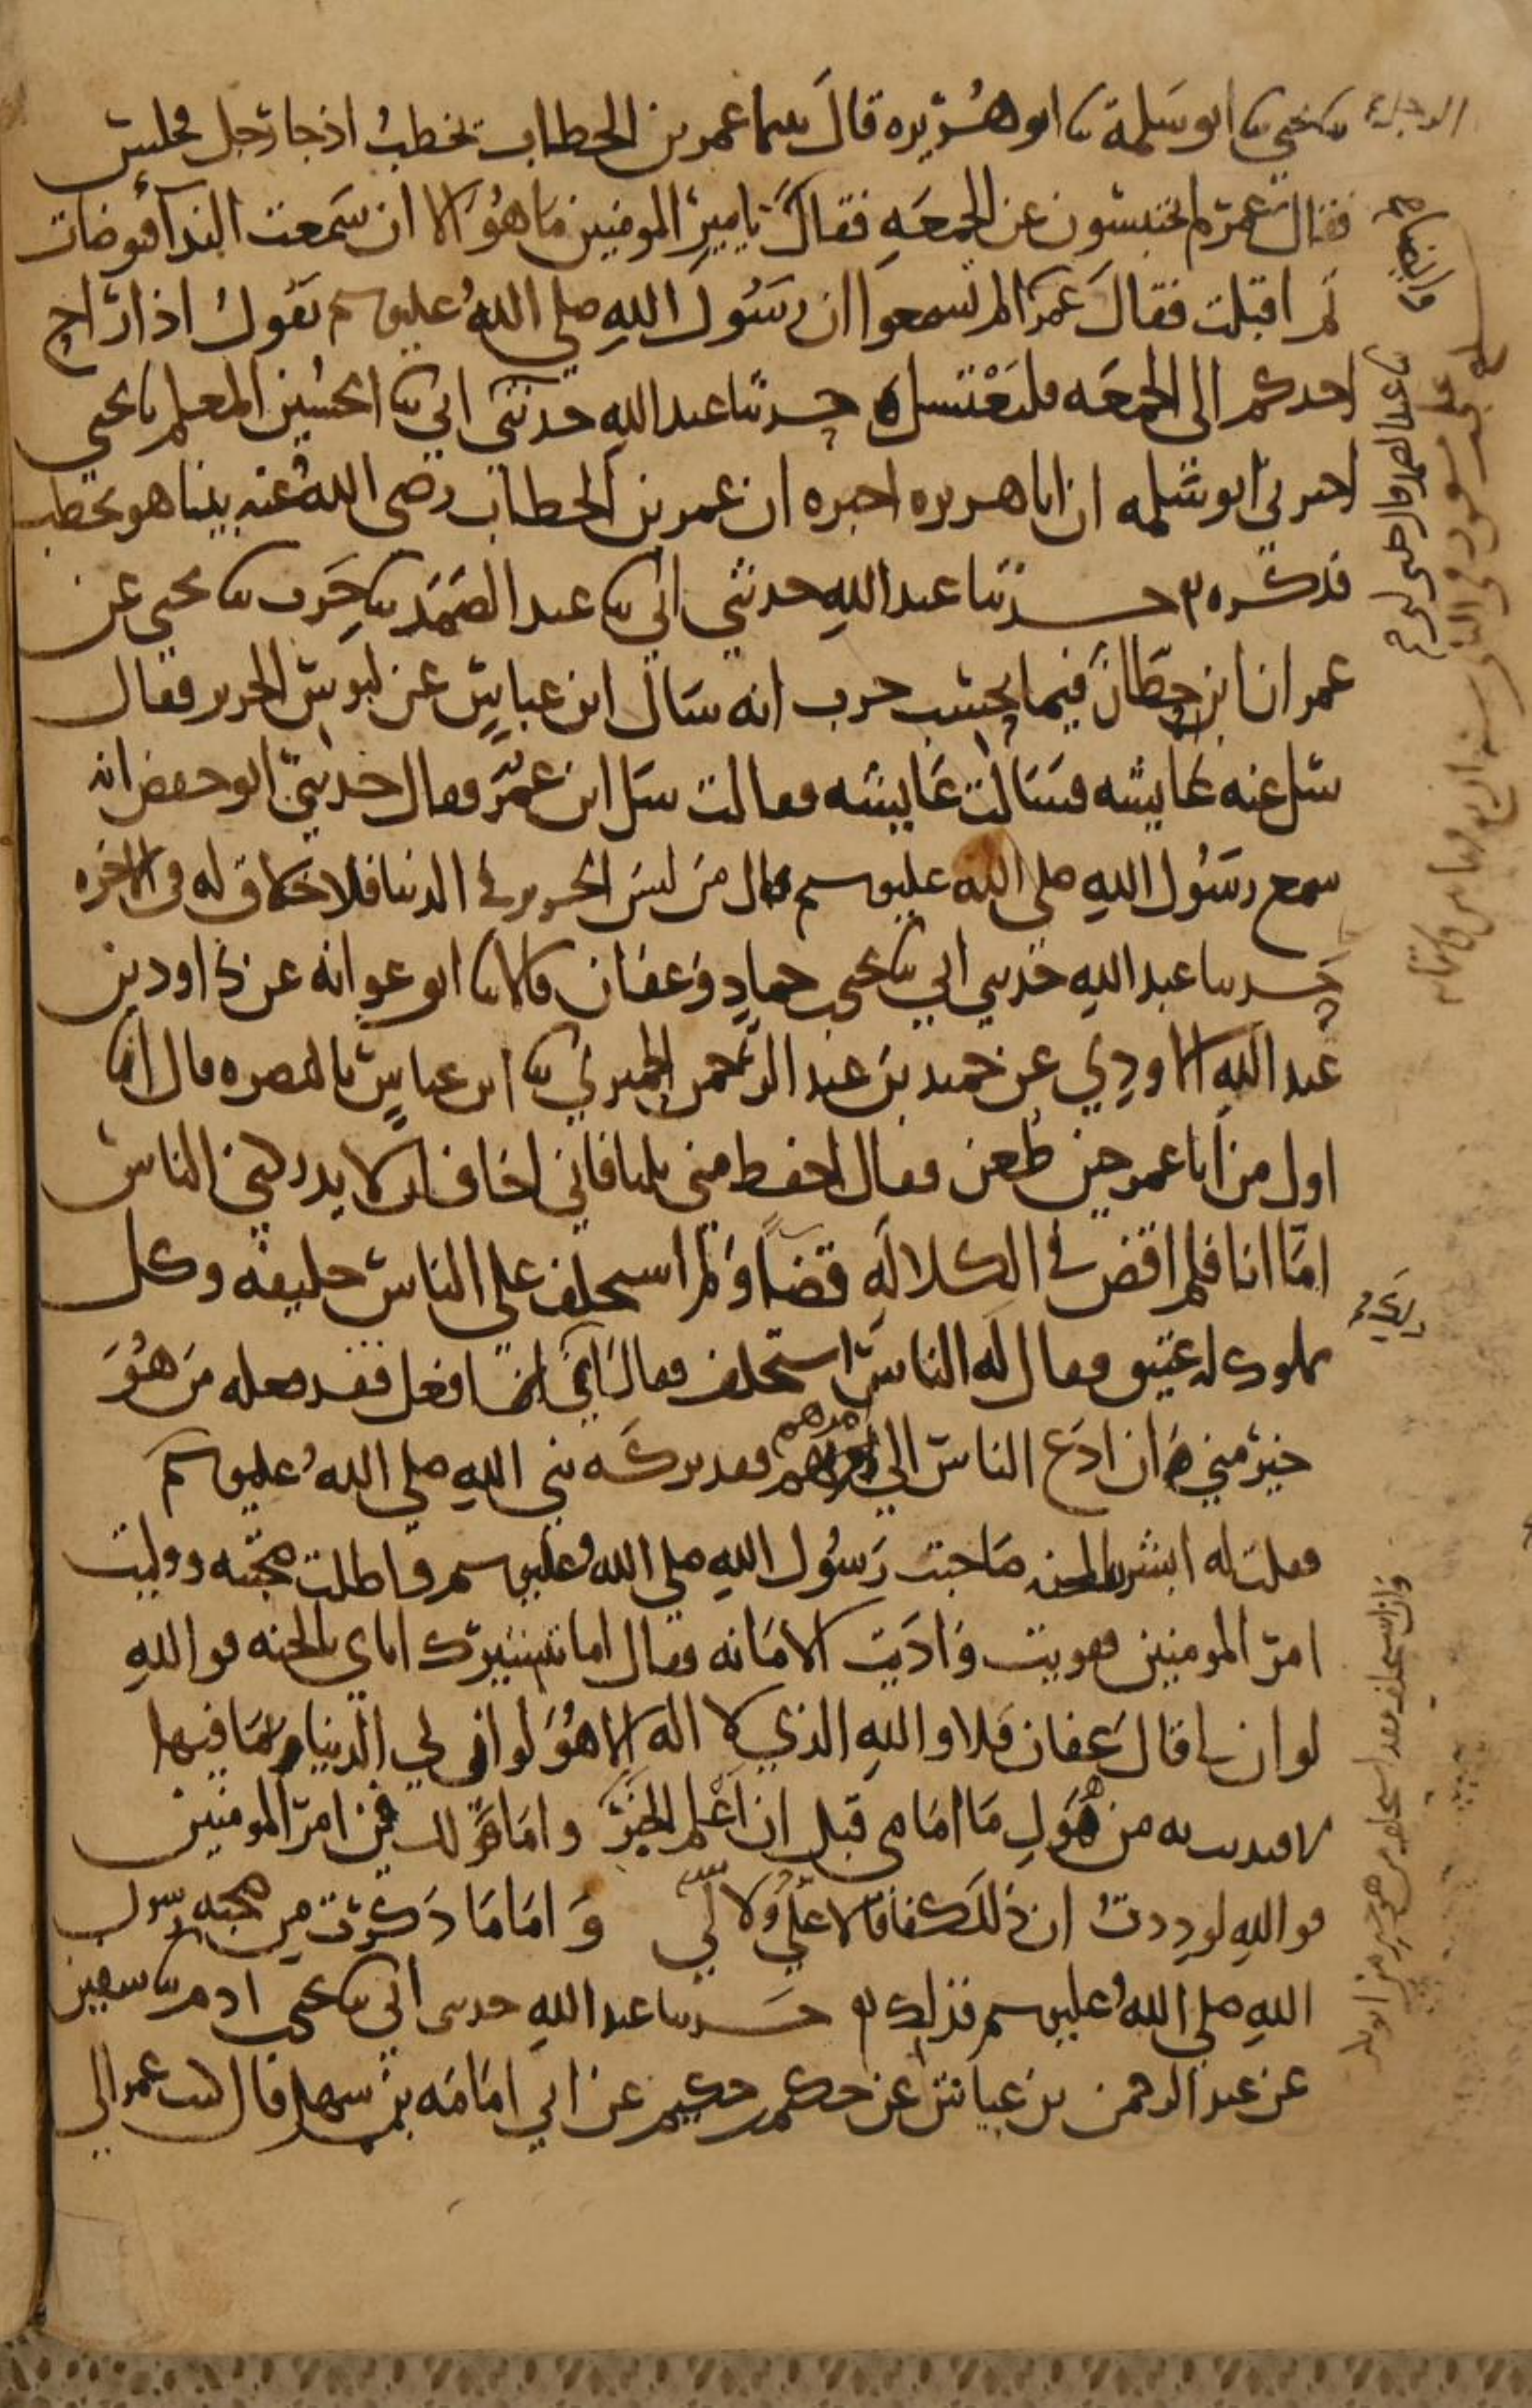 نا يحيى نا ابو سلمة نا ابو هريره قال بينما عمر بن الخطاب يخطب اذ جا رجل فجلس
فقال عمر لم تحتبسون عن الجمعه فقال يا امير المومنين ما هو الا ان سمعت الندا فتوضات
ثم اقبلت فقال عمر الم تسمعوا ان رسول الله صلى الله عليه وسلم يقول اذا راح
احدكم الى الجمعه فليغتسل حدثنا عبد الله حدثني ابي نا الحسين المعلم نا يحيى
اخبرني ابو سلمه ان ابا هريره اخبره ان عمر بن الخطاب رضى الله عنه بينا هو يخطب
فذكره حدثنا عبد الله حدثني ابي نا عبد الصمد نا حرب نا يحيى عن
عمران ابن حطان فيما يحسب حرب انه سال ابن عباس عن لبوس الحرير فقال
سل عنه عايشه فسالت عايشه فقالت سل ابن عمر فقال حدثني ابو حفص انه
سمع رسول الله صلى الله عليه وسلم قال من لبس الحرير في الدنيا فلا خلاق له في الاخره
حدثنا عبد الله حدثني ابي نا يحيى حماد وعفان قالا نا ابو عوانه عن داود بن
عبد الله الاودي عن حميد بن عبد الرحمن الحميري نا ابن عباس بالبصره قال انا
اول من اتا عمر حين طعن فقال احفظ مني ثلثا فاني اخاف ان لا يدركني الناس
اما انا فلم اقض في الكلاله قضا ولم استخلف على الناس خليفه وكل
مملوك له عتيق فقال له الناس استخلف فقال اي ذلك افعل فقد فعله من هو
خير مني ان ادع الناس الى امرهم فقد تركه نبي الله صلى الله عليه وسلم
فقلت له ابشر بالجنه صاحبت رسول الله صلى الله عليه وسلم فاطلت صحبته ووليت
امر المومنين فقويت واديت الامانه فقال اما تبشيرك اياي بالجنه فو الله
لو ان لي قال عفان فلا والله الذي لا اله الا هو لو ان لي الدنيا بما فيها
لافتديت به من هول ما امامي قبل ان اعلم الخبر واما قولك في امر المومنين
فو الله لوددت ان ذلك كفافا لا علي ولا لي واما ما ذكرت من صحبه رسول
الله صلى الله عليه وسلم فذلك حدثنا عبد الله حدثني ابي نا يحيى ادم نا سفين
عن عبد الرحمن بن عياش عن حكيم حكيم عن ابي امامه بن سهل قال كتب عمر الى
وان استخلف فقد استخلف من هو خير مني ابو بكر